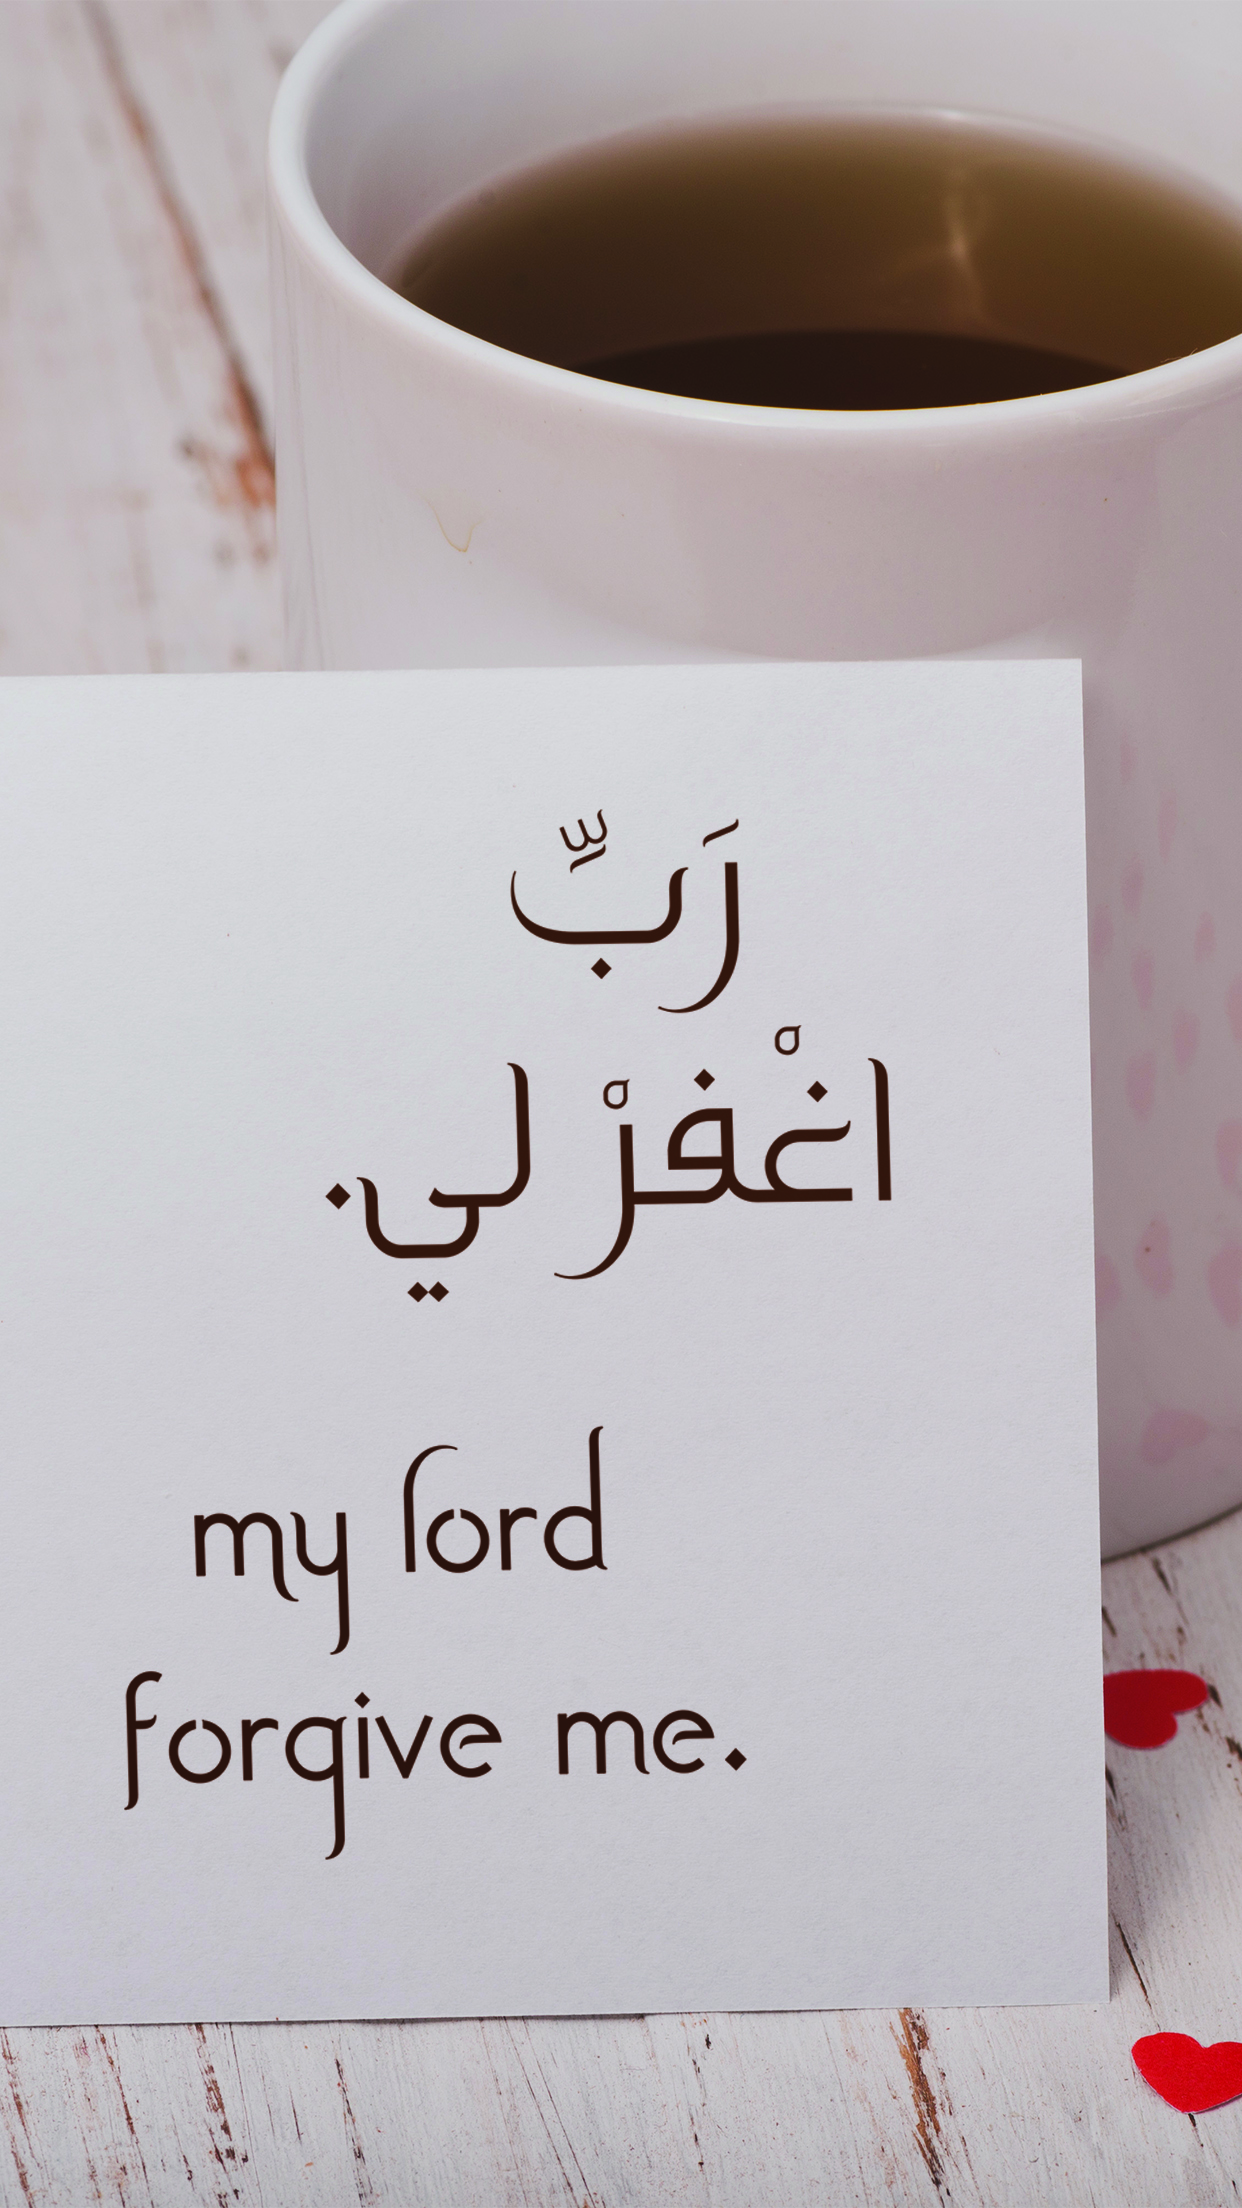 رَبِّ
اغْفرْ لي.
my lord
forgive me.